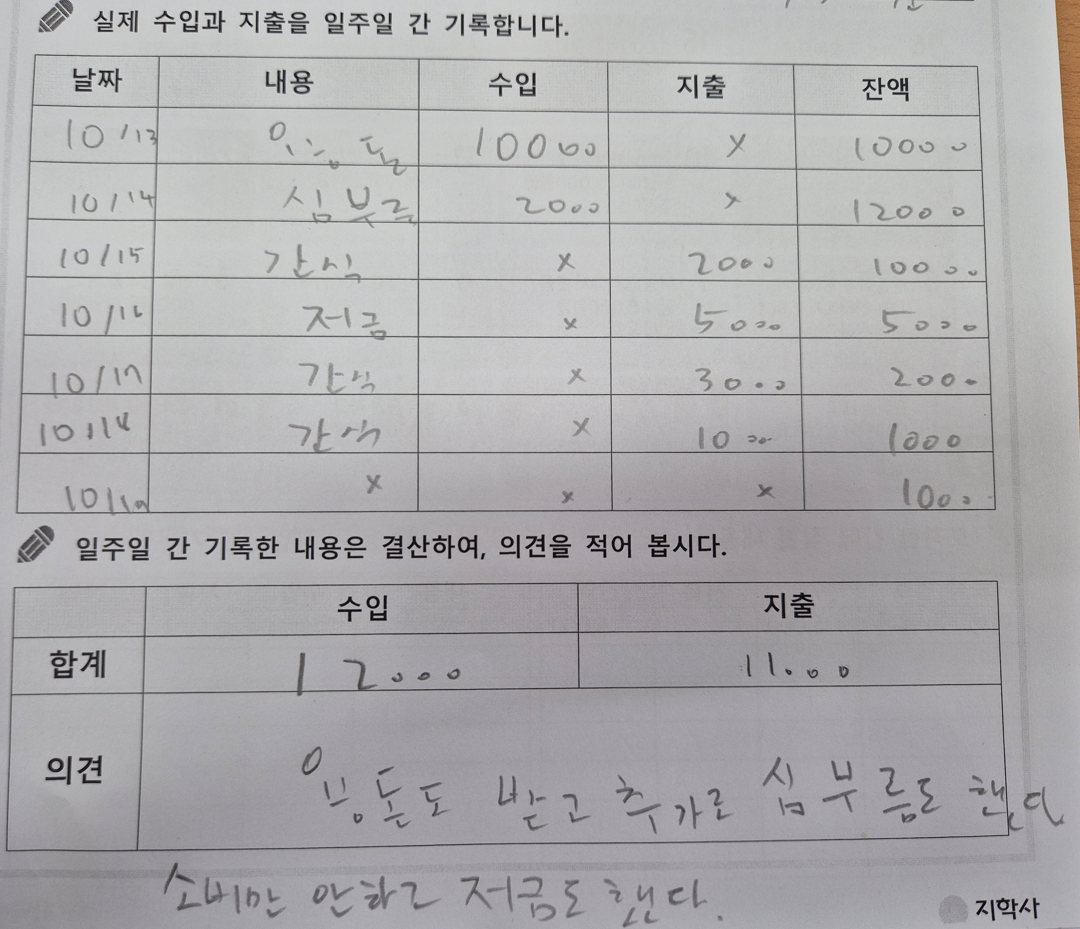 실제 수입과 지출을 일주일 간 기록합니다.
날짜 내용 수입 지출 잔액
10/13 용돈 10000 x 10000
10/14 심부름 2000 x 12000
10/15 간식 x 2000 10000
10/16 저금 x 5000 5000
10/17 간식 x 3000 2000
10/18 간식 x 1000 1000
10/19 x x x 1000
일주일 간 기록한 내용은 결산하여, 의견을 적어 봅시다.
수입 지출
합계 12000 11000
의견 용돈도 받고 추가로 심부름도 했다
소비만 안하고 저금도 했다.
지학사